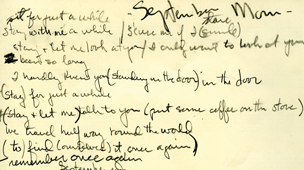 September Moon -
sit for just a while
stay with me a while / Scuse me if I (smile) stare
stay + let me look at you / I only want to look at you
been so long
I hardly knew you (standing in the door) in the door
(Stay for just a while
(Stay + let me) talk to you (put some coffee on the stove)
We travel half way round the world
(to) find (ourselves) it once again)
remember once again
September